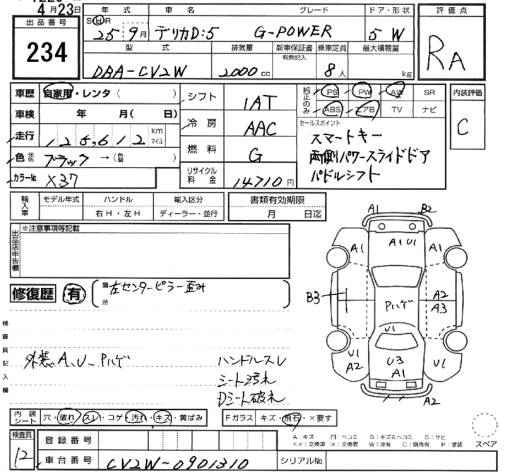 4月23日
出品番号
234
年式 車名 グレード ドア・形状
S H R 25年9月 デリカD:5 G-POWER 5W
型式 排気量 新車保証書 乗車定員 最大積載量
有無記入
DBA-CV2W 2000cc 8人 kg
評価点
RA
車歴 自家用・レンタ ( )
車検 年 月( 日)
走行 125,612 km マイル
色 ブラック → (替色)
カラーNo X37
シフト 1AT
冷房 AAC
燃料 G
リサイクル料金 14710円
純正のみ PS PW AW SR
ABS エアB TV ナビ
セールスポイント
スマートキー
両側パワースライドドア
パドルシフト
内装評価
C
輸入車 モデル年式 ハンドル 輸入区分
右H・左H ディーラー・並行
書類有効期限
月 日迄
出品店申告欄
※注意事項等記載
修復歴 有
箇所
左センターピラー歪み
検査員記入欄
外装A、U、Pハゲ
ハンドルスレ
シート汚れ
Dシート破れ
A1 B2
A1 A1 U1 A1
B3 Pハゲ A2
A3
U1
U1 U3 U1
A2 A1 A2
内装シート 穴・破れ・スレ・コゲ・汚れ・キズ・黄ばみ
Fガラス キズ・飛石・×要す
スペア
検査員
12
登録番号
車台番号 CV2W-0901310
シリアルNo